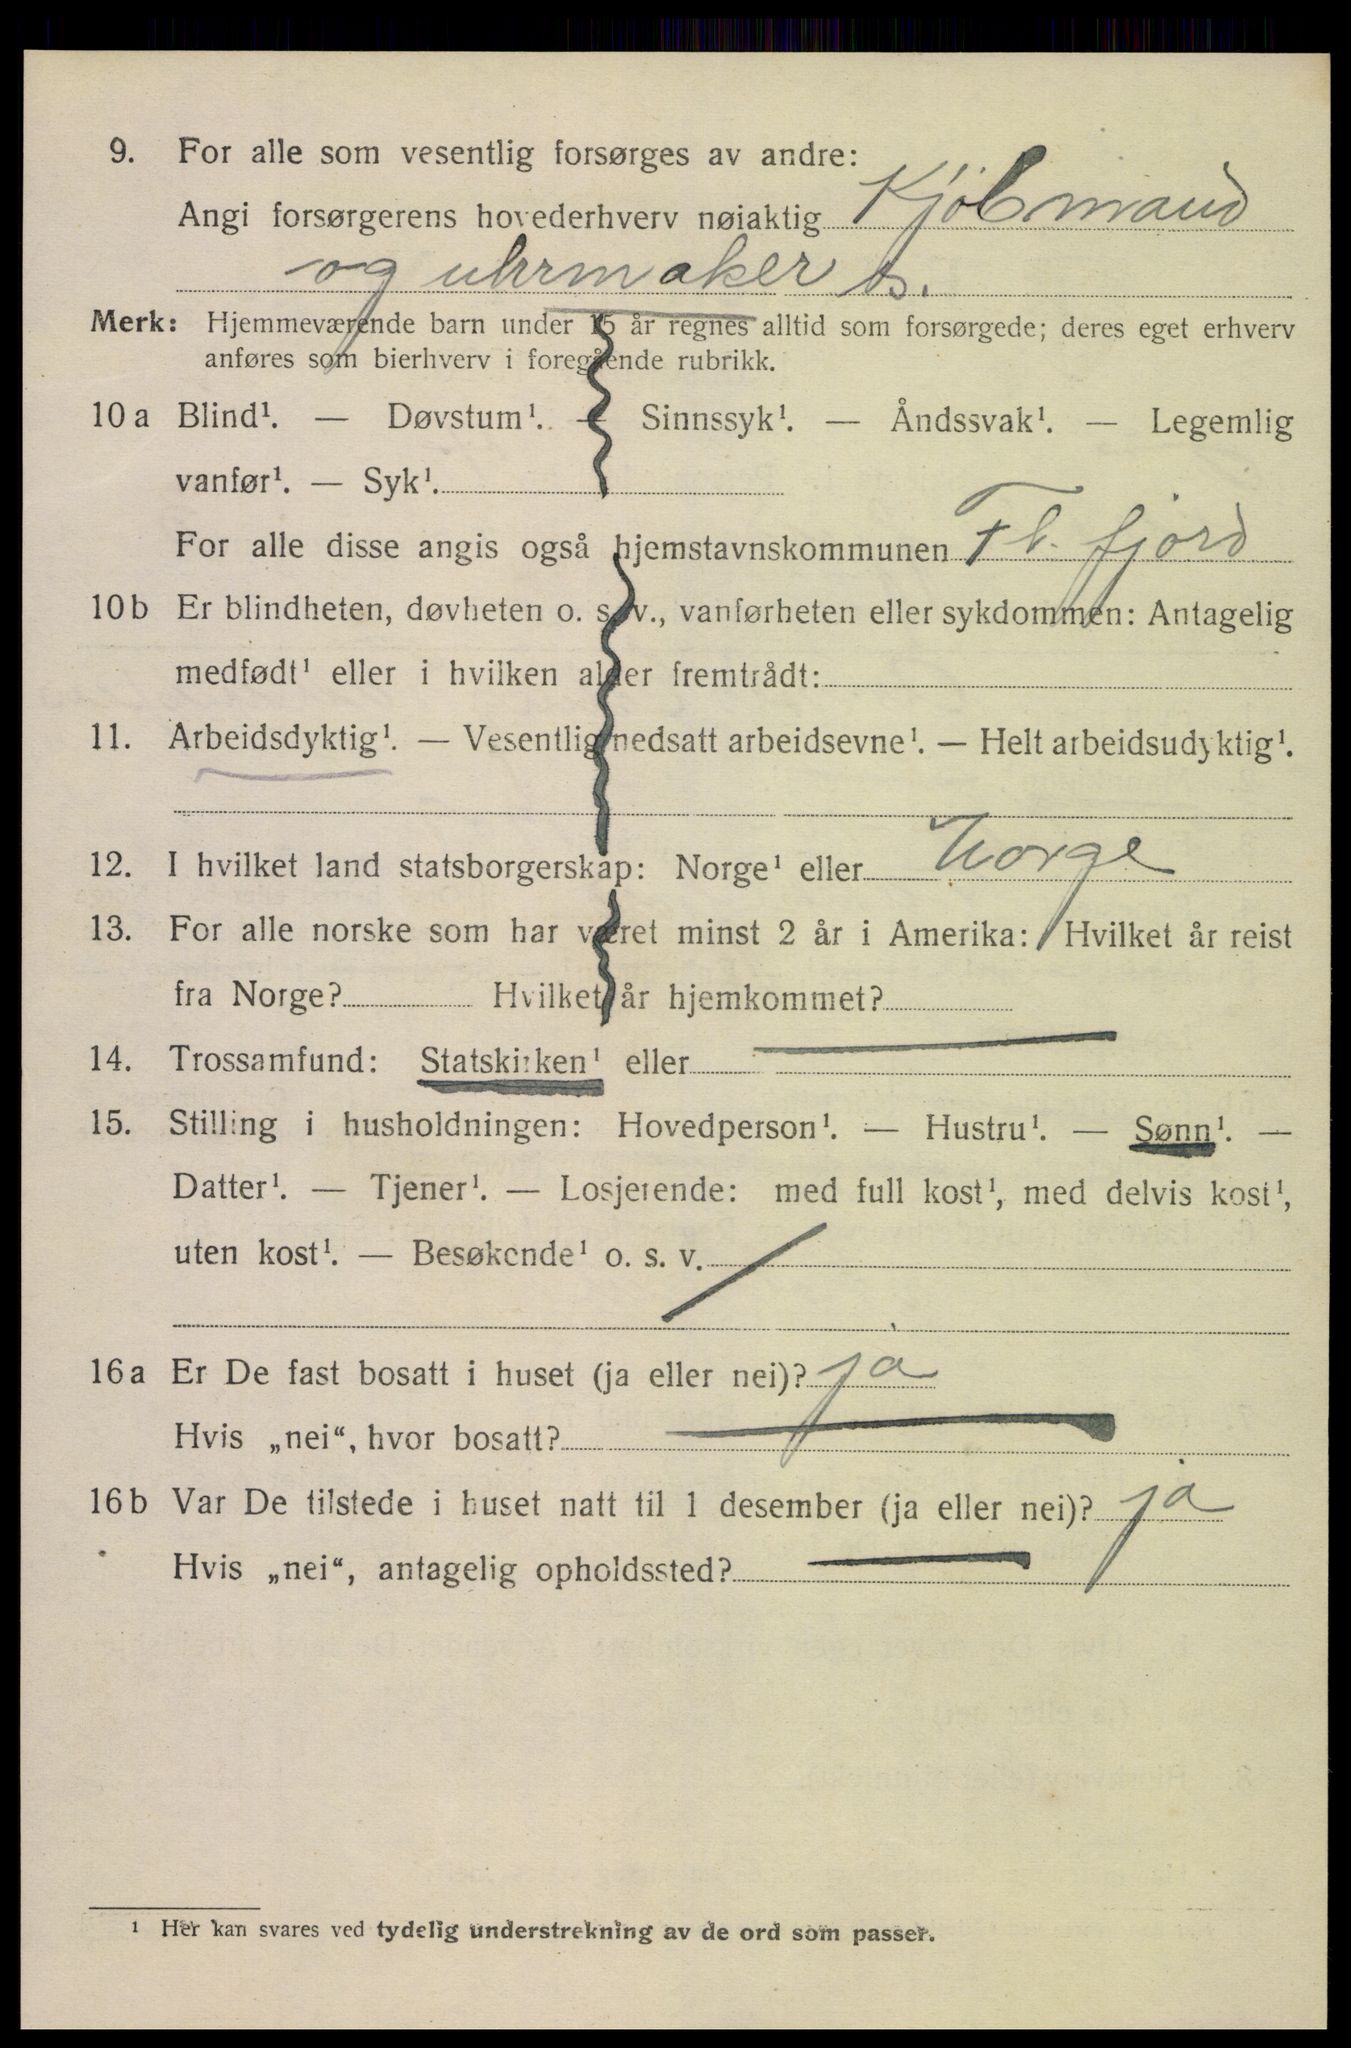 9. For alle som vesentlig forsørges av andre:
Angi forsørgerens hovederhverv nøiaktig Kjöbmand
og uhrmaker s.
Merk: Hjemmeværende barn under 15 år regnes alltid som forsørgede; deres eget erhverv
anføres som bierhverv i foregående rubrikk.
10a Blind¹. — Døvstum¹. — Sinnssyk¹. — Åndssvak¹. — Legemlig
vanfør¹. — Syk¹.
For alle disse angis også hjemstavnskommunen Fl. fjord
10b Er blindheten, døvheten o. s. v., vanførheten eller sykdommen: Antagelig
medfødt¹ eller i hvilken alder fremtrådt:
11. Arbeidsdyktig¹. — Vesentlig nedsatt arbeidsevne¹. — Helt arbeidsudyktig¹.
12. I hvilket land statsborgerskap: Norge¹ eller Norge
13. For alle norske som har været minst 2 år i Amerika: Hvilket år reist
fra Norge? Hvilket år hjemkommet?
14. Trossamfund: Statskirken¹ eller
15. Stilling i husholdningen: Hovedperson¹. — Hustru¹. — Sønn¹. —
Datter¹. — Tjener¹. — Losjerende: med full kost¹, med delvis kost¹,
uten kost¹. — Besøkende¹ o. s. v.
16a Er De fast bosatt i huset (ja eller nei)? ja
Hvis „nei“, hvor bosatt?
16b Var De tilstede i huset natt til 1 desember (ja eller nei)? ja
Hvis „nei“, antagelig opholdssted?
¹ Her kan svares ved tydelig understrekning av de ord som passer.